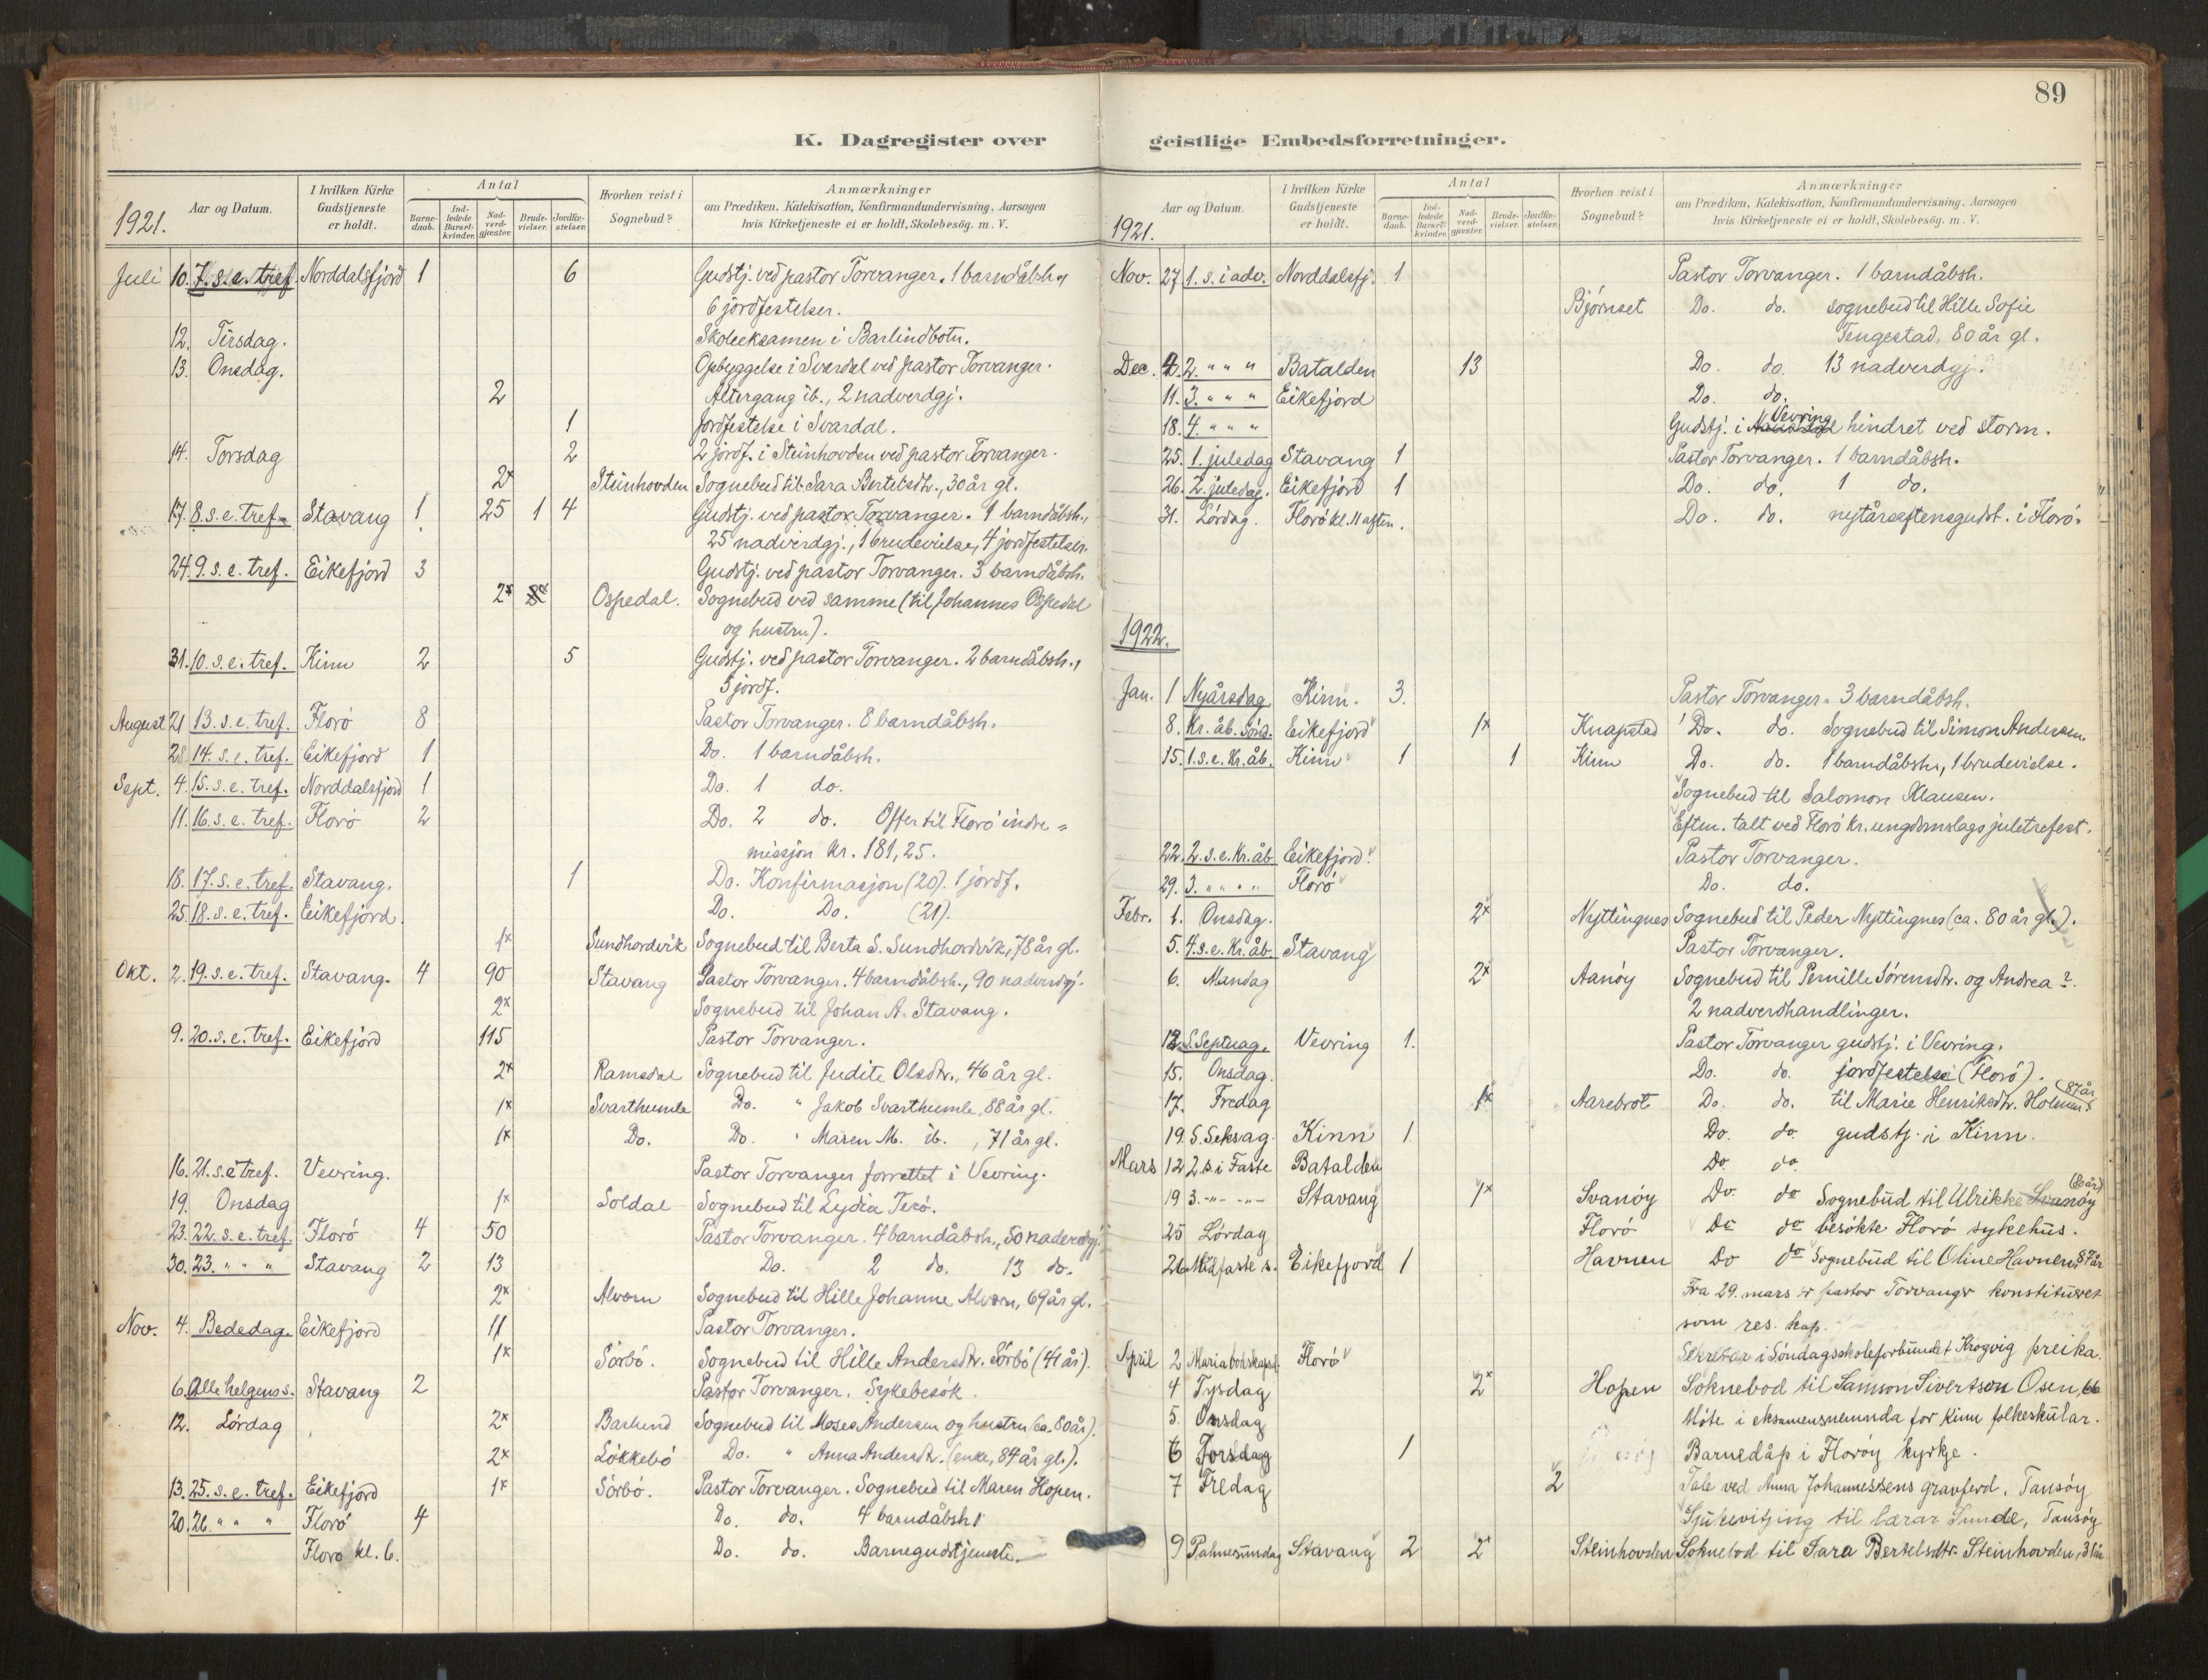 89
K. Dagregister over geistlige Embedsforretninger.
1921. Aar og Datum. I hvilken Kirke Gudstjeneste er holdt. Antal Barnedaab. Indledede Barselkvinder. Nadverdgjæster. Brudevielser. Jordfæstelser. Hvorhen reist i Sognebud? Anmærkninger om Prædiken, Katekisation, Konfirmandundervisning, Aarsagen hvis Kirketjeneste ei er holdt, Skolebesøg. m. V.
Juli 10. 7. s. e. tref. Norddalsfjord 1 6 Gudstj. ved pastor Torvanger. 1 barndåbsh.,
6 jordfestelser.
12. Tirsdag. Skoleeksamen i Barlindbotn.
13. Onsdag. Opbyggelse i Svardal ved pastor Torvanger.
2 Altergang ib., 2 nadverdgj.
1 Jordfestelse i Svardal.
14. Torsdag 2 2 jordf. i Steinhovden ved pastor Torvanger.
2x Steinhovden Sognebud til Sara Bertelsdtr., 30 år gl.
17. 8. s. e. tref. Stavang 1 25 1 4 Gudstj. ved pastor Torvanger. 1 barndåbsh.,
25 nadverdgj., 1 brudevielse, 4 jordfestelser.
24. 9. s. e. tref. Eikefjord 3 Gudstj. ved pastor Torvanger. 3 barndåbsh.
2x Ospedal. Sognebud ved samme (til Johannes Ospedal
og hustru).
31. 10. s. e. tref. Kinn 2 5 Gudstj. ved pastor Torvanger. 2 barndåbsh.,
5 jordf.
August 21 13. s. e. tref. Florø 8 Pastor Torvanger. 8 barndåbsh.
28. 14. s. e. tref. Eikefjord 1 Do. 1 barndåbsh.
Sept. 4. 15. s. e. tref. Norddalsfjord 1 Do. 1 do.
11. 16. s. e. tref. Florø 2 Do. 2 do. Offer til Florø indre-
missjon kr. 181,25.
18. 17. s. e. tref. Stavang. 1 Do. Konfirmasjon (20). 1 jordf.
25. 18. s. e. tref. Eikefjord. Do. Do. (21).
1x Sundhordvik Sognebud til Berta S. Sundhordvik, 78 år gl.
Okt. 2. 19. s. e. tref. Stavang. 4 90 Stavang Pastor Torvanger. 4 barndåbsh., 90 nadverdgj.
2x Sognebud til Johan A. Stavang.
9. 20. s. e. tref. Eikefjord 115 Pastor Torvanger.
2x Ramsdal Sognebud til Judite Olsdtr., 46 år gl.
1x Svarthumle Do. " Jakob Svarthumle, 88 år gl.
1x Do. Do. " Maren M. ib., 71 år gl.
16. 21. s. e. tref. Vevring. Pastor Torvanger forrettet i Vevring.
19. Onsdag 1x Soldal Sognebud til Lydia Terø.
23. 22. s. e. tref. Florø 4 50 Pastor Torvanger. 4 barndåbsh., 50 nadverdgj.
30. 23. " " " Stavang 2 13 Do. 2 do. 13 do.
2x Alvorn Sognebud til Hille Johanne Alvorn, 69 år gl.
Nov. 4. Bededag. Eikefjord 11 Pastor Torvanger.
1x Sørbø. Sognebud til Hille Andersdtr. Sørbø (41 år).
6. Alle helgens s. Stavang 2 Pastor Torvanger. Sykebesøk.
12. Lørdag 2x Barlund Sognebud til Moses Andersen og hustru (ca. 80 år).
2x Løkkebø Do. " Anna Andersdtr. (enke, 84 år gl.).
13. 25. s. e. tref. Eikefjord 1x Sørbø. Pastor Torvanger. Sognebud til Maren Hopen.
20. 26. " " " Florø 4 Do. do. 4 barndåbsh.
Florø kl. 6. Do. do. Barnegudstjeneste.
1921. Aar og Datum. I hvilken Kirke Gudstjeneste er holdt. Antal Barnedaab. Indledede Barselkvinder. Nadverdgjæster. Brudevielser. Jordfæstelser. Hvorhen reist i Sognebud? Anmærkninger om Prædiken, Katekisation, Konfirmandundervisning, Aarsagen hvis Kirketjeneste ei er holdt, Skolebesøg. m. V.
Nov. 27 1. s. i adv. Norddalsfj. 1 Pastor Torvanger. 1 barndåbsh.
Bjørnset Do. do. sognebud til Hille Sofie
Tengestad, 80 år gl.
Dec. 4. 2. " " " Batalden 13 Do. do. 13 nadverdgj.
11. 3. " " " Eikefjord Do. do.
18. 4. " " " Gudstj. i Vevring hindret ved storm.
25. 1. juledag Stavang 1 Pastor Torvanger. 1 barndåbsh.
26. 2. juledag. Eikefjord 1 Do. do. 1 do.
31. Lørdag. Florø kl. 11 aften. Do. do. nytårsaftensgudst. i Florø.
1922.
Jan. 1 Nyårsdag Kinn. 3. Pastor Torvanger. 3 barndåbsh.
8. Kr. åb. sønd. Eikefjord 1x Knapstad Do. do. Sognebud til Simon Andersen.
15. 1. s. e. Kr. åb. Kinn 1 1 Kinn Do. do. 1 barndåbsh., 1 brudevielse.
Sognebud til Salomon Klausen.
Eftm. talt ved Florø kr. ungdomslags juletrefest.
22. 2. s. e. Kr. åb. Eikefjord. Pastor Torvanger.
29. 3. " " " " Florø Do. do.
Febr. 1. Onsdag. 2x Nyttingnes Sognebud til Peder Nyttingnes (ca. 80 år gl.).
5. 4. s. e. Kr. åb. Stavang Pastor Torvanger.
6. Mandag 2x Aanøy Sognebud til Pernille Sørensdtr. og Andrea ?.
2 nadverdhandlinger.
12. S. Septuag. Vevring 1. Pastor Torvanger gudstj. i Vevring.
15. Onsdag. Do. do. jordfestelse (Florø).
17. Fredag 1x Aarebrot Do. do. til Marie Henriksdtr. Holmen (87 år).
19. S. Seksag. Kinn 1 Do. do. gudstj. i Kinn.
Mars 12 2. s. i Faste Batalden Do. do.
19 3. -"- -"- Stavang 1x Svanøy Do. do Sognebud til Ulrikke Svanøy
25 Lørdag Florø Do do besøkte Florø sykehus.
26. Midfaste s. Eikefjord 1 Havnen Do do Sognebud til Oline Havnen, 87 år
Fra 29. mars er pastor Torvanger konstituert
som res. kap.
April 2 Mariabodskapsd. Florø Sekretær i Søndagsskoleforbundet Krogvig preika.
4 Tysdag 2x Hopen Soknebod til Samson Sivertson Osen, 66
5. Onsdag Møte i eksamensnemnda for Kinn folkeskular.
6 Torsdag 1 Barnedåp i Florøy kyrkje.
7 Fredag 2 Tale ved Anna Johannessens gravferd, Tansøy
Sjukevitjing til lærar Sunde, Tansøy
9 Palmesundag Stavang 2 2x Steinhovden Soknebod til Sara Bertelsdtr. Steinhovden, 31 år